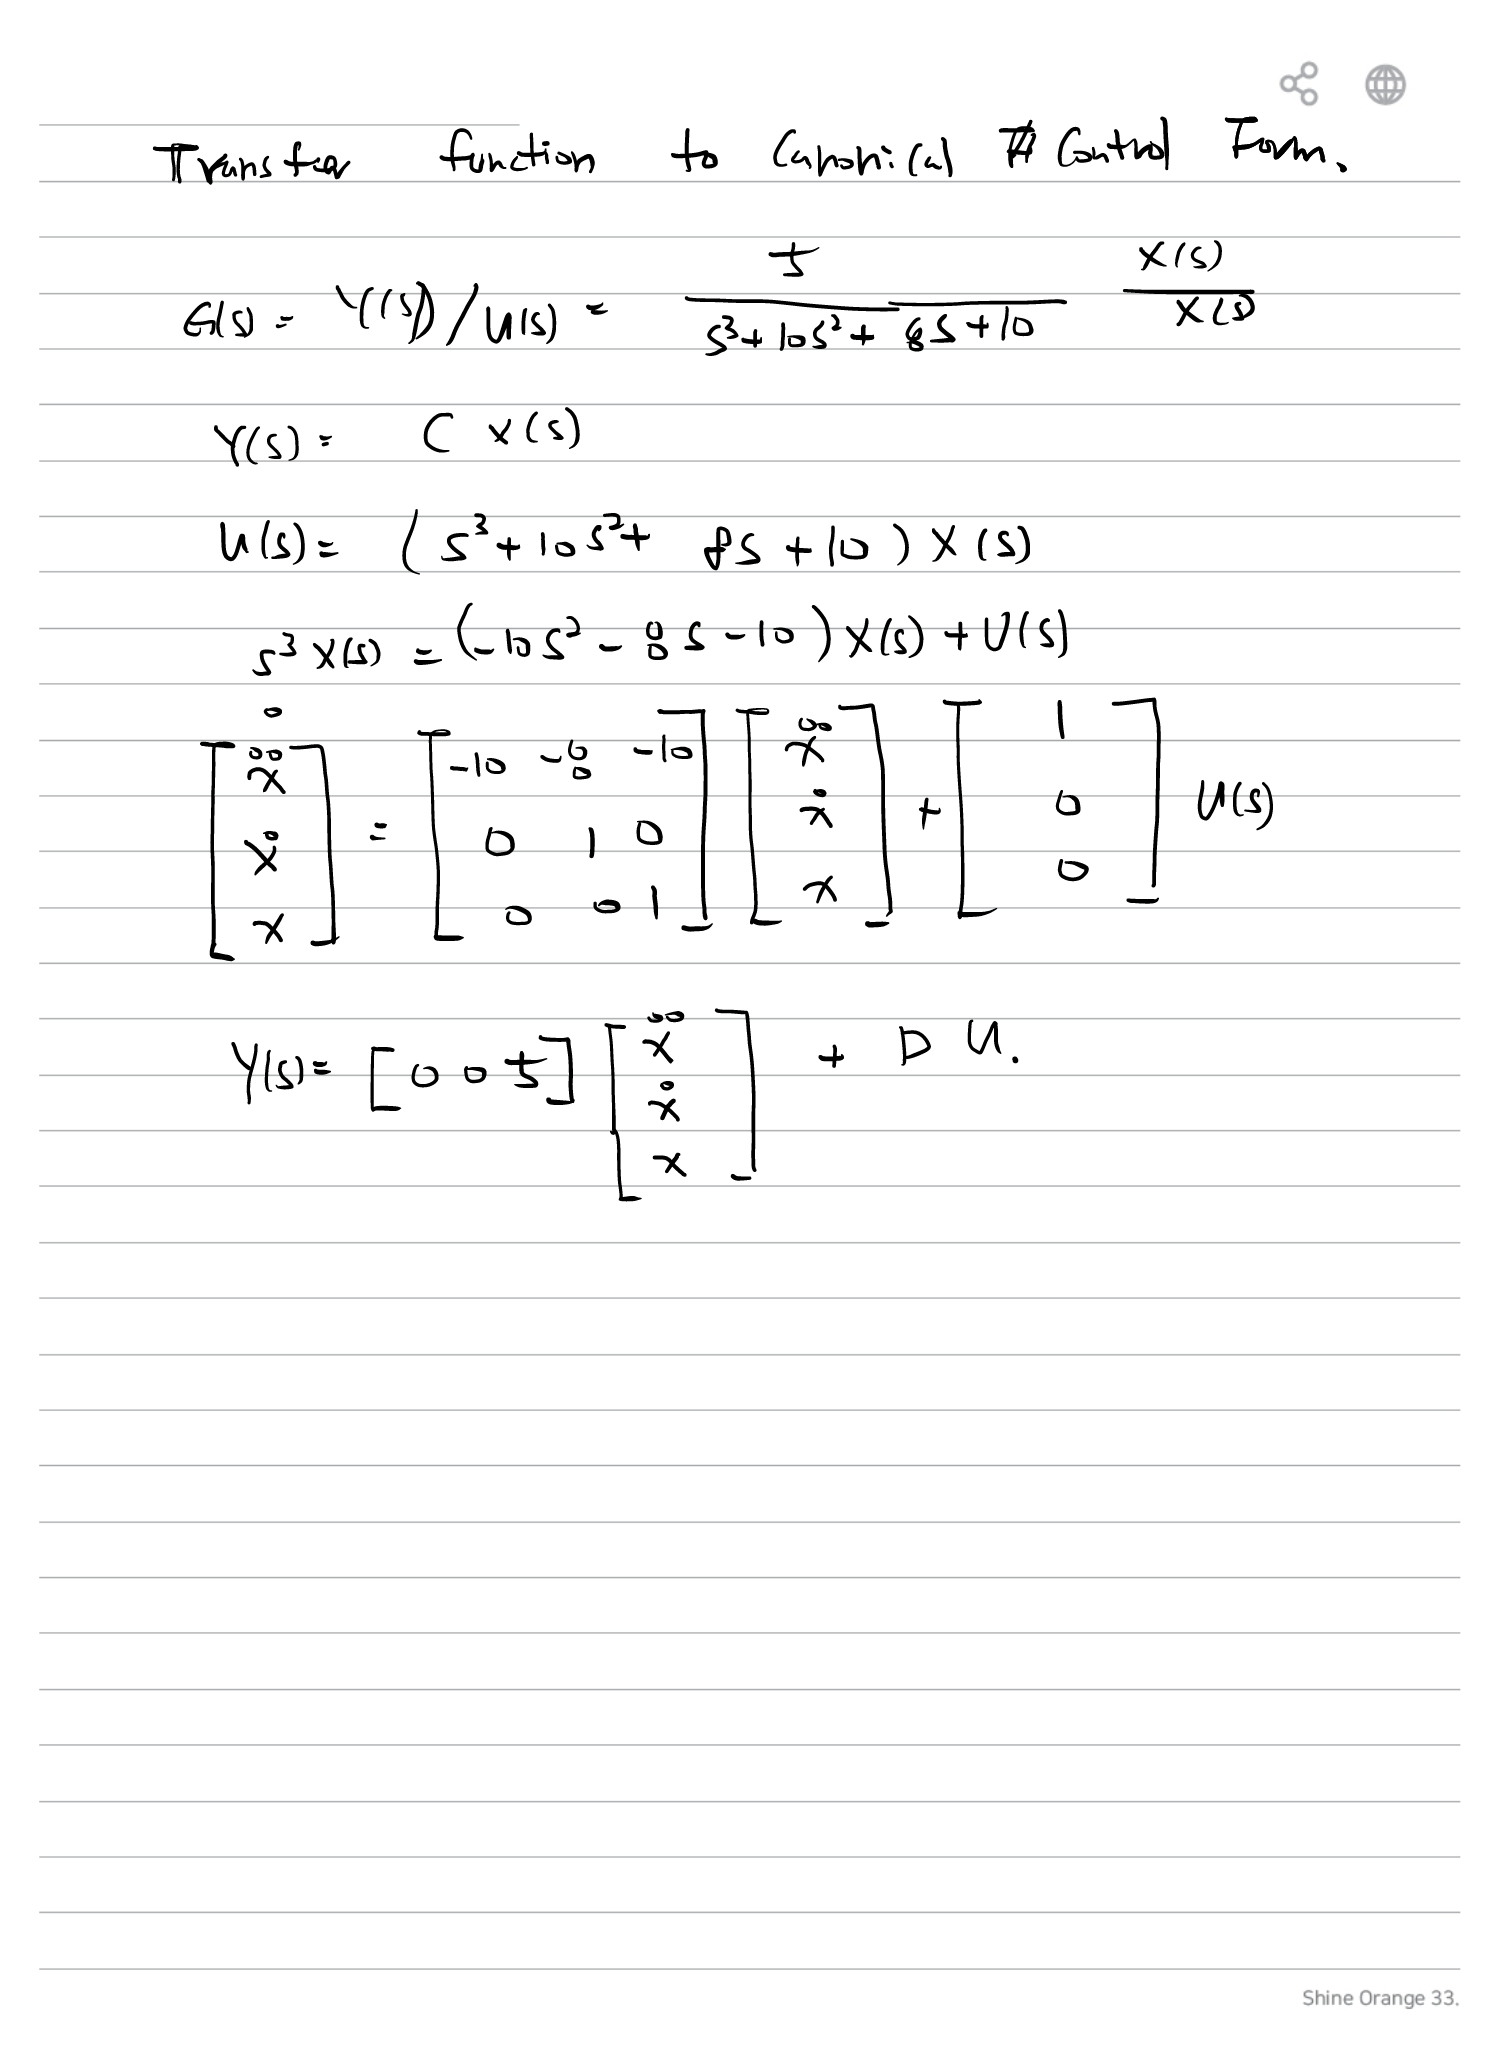 Transfer function to Canonical Control Form.
G(s) = Y(s)/U(s) = 5 / (s³+10s²+8s+10) X(s)/X(s)
Y(s) = C X(s)
U(s) = (s³+10s²+8s+10) X(s)
s³X(s) = (-10s²-8s-10) X(s) + U(s)
d/dt [ẍ; ẋ; x] = [-10 -8 -10; 0 1 0; 0 0 1] [ẍ; ẋ; x] + [1; 0; 0] U(s)
Y(s) = [0 0 5] [ẍ; ẋ; x] + D U.
Shine Orange 33.